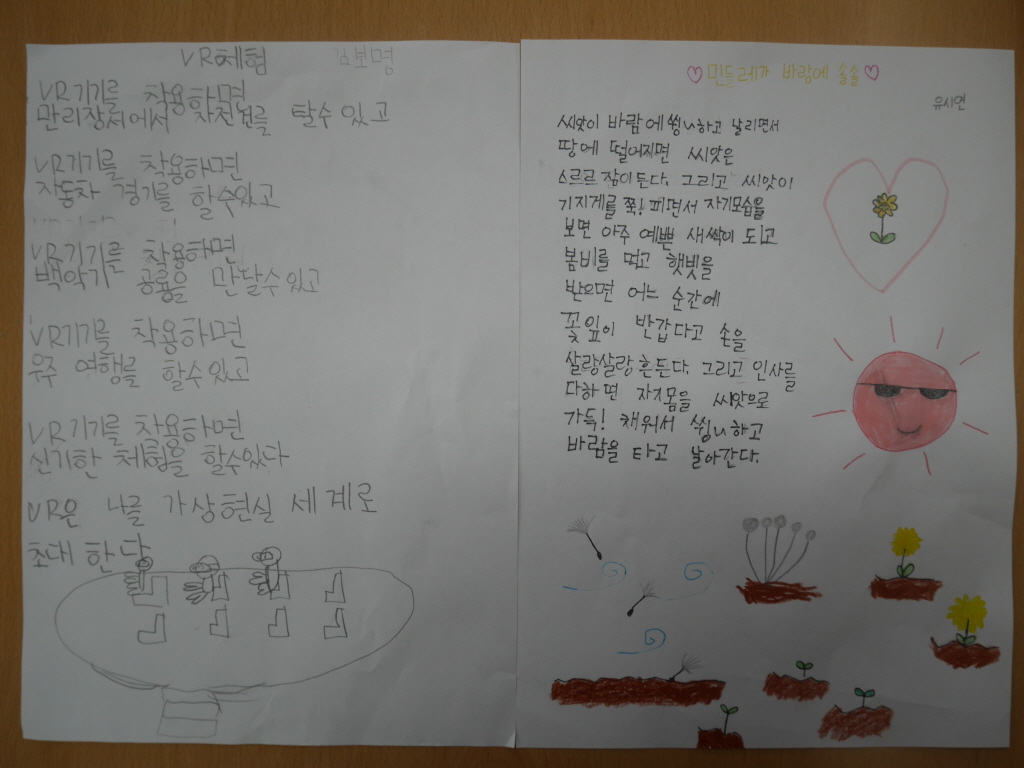 VR체험 김보명
VR기기를 착용하면
만리장성에서 자전거를 탈수 있고
VR기기를 착용하면
자동차 경기를 할수있고
VR기기를 착용하면
백악기 공룡을 만날수있고
VR기기를 착용하면
우주 여행을 할수있고
VR기기를 착용하면
신기한 체험을 할수있다
VR은 나를 가상현실 세계로
초대 한다
민들레가 바람에 솔솔
유시연
씨앗이 바람에 씽ㅆ하고 날리면서
땅에 떨어지면 씨앗은
스르르 잠이 든다. 그리고 씨앗이
기지게를 쭉! 펴면서 자기모습을
보면 아주 예쁜 새싹이 되고
봄비를 먹고 햇빛을
받으면 어느 순간에
꽃잎이 반갑다고 손을
살랑살랑 흔든다. 그리고 인사를
다하면 자기몸을 씨앗으로
가득! 채워서 씽ㅆ하고
바람을 타고 날아간다.